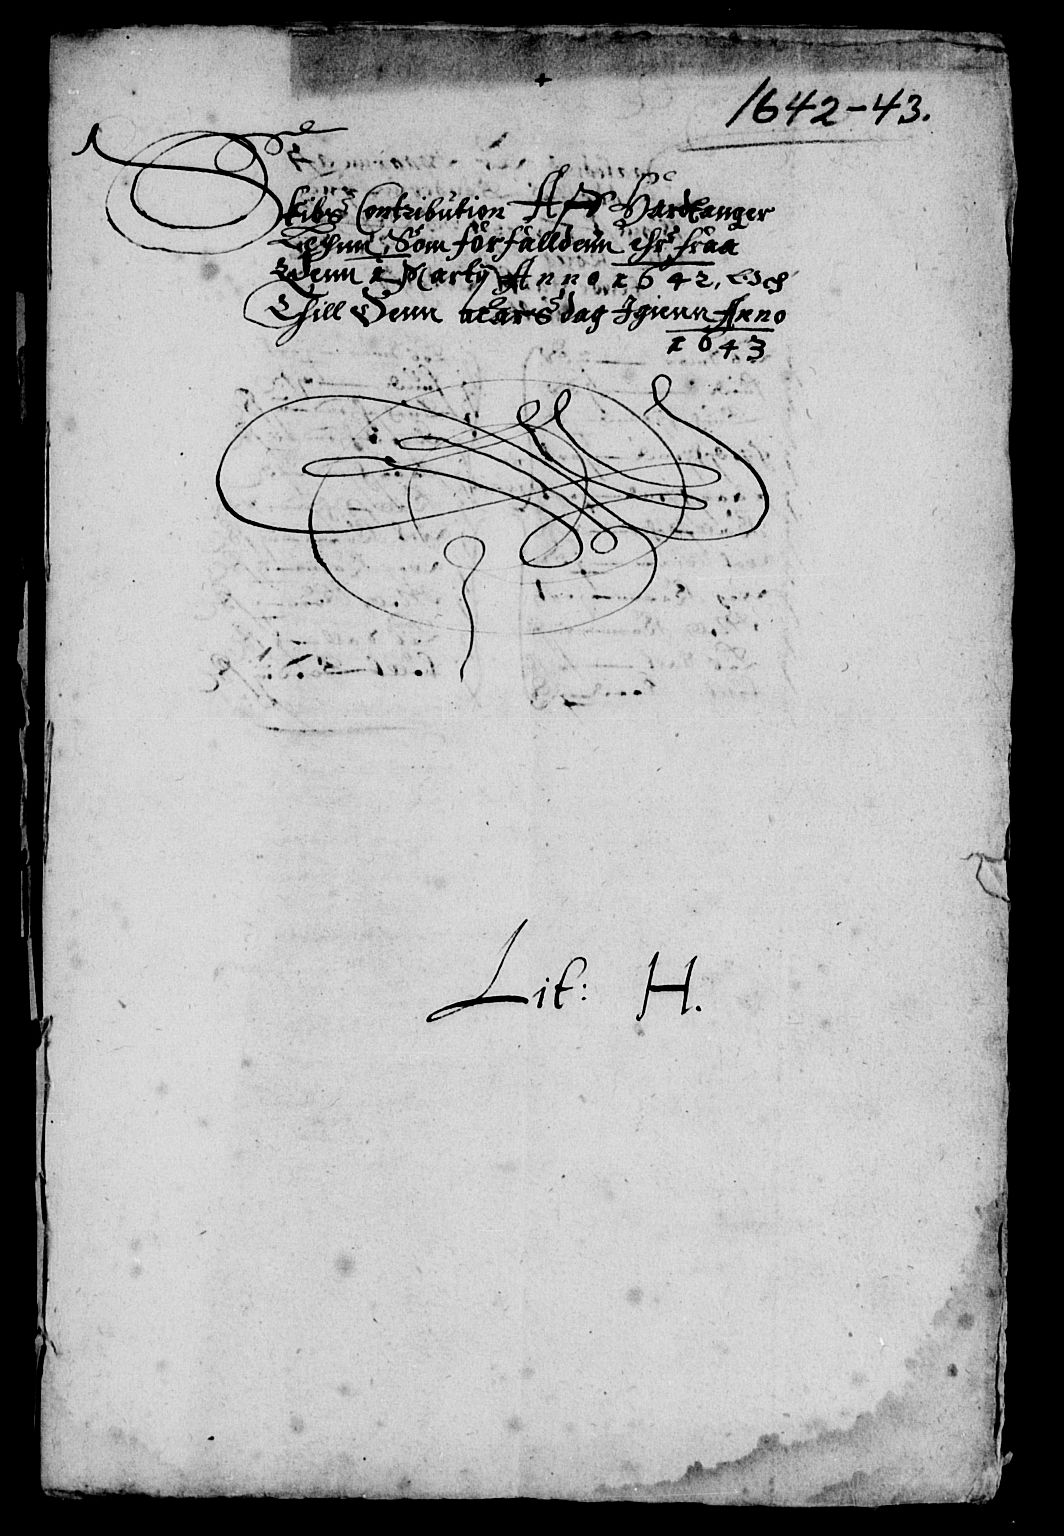 1642-43.
Skibs Contribution Aff Hardanger
Lehnn, Som forfalldenn ehr fraa
Denn 1 Marty Anno 1642, Och
Thill Denn aarsdag Igienn Anno
1643
Lit: H.